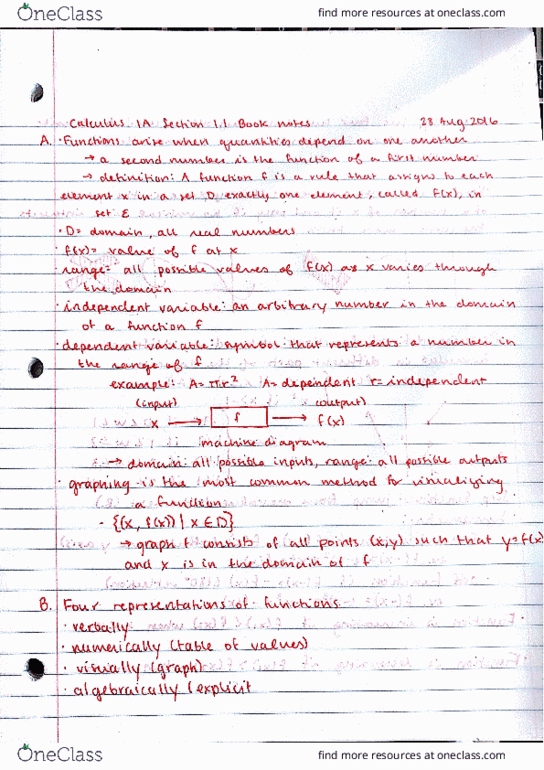 OneClass
find more resources at oneclass.com
Calculus 1A Section 1.1 Book notes 28 Aug 2016
A. · Functions arise when quantities depend on one another
→ a second number is the function of a first number
→ definition: A function f is a rule that assigns to each
element x in a set D exactly one element, called f(x), in
set E
· D = domain, all real numbers
· f(x) = value of f at x
· range: all possible values of f(x) as x varies through
the domain
· independent variable: an arbitrary number in the domain
of a function f
· dependent variable: symbol that represents a number in
the range of f
example: A = πr² A = dependent r = independent
(input) (output)
x → f → f(x)
machine diagram
→ domain: all possible inputs, range: all possible outputs
· graphing is the most common method for visualizing
a function
· {(x, f(x)) | x ∈ D}
→ graph f consists of all points (x,y) such that y=f(x)
and x is in the domain of f
B. Four representations of functions
· verbally
· numerically (table of values)
· visually (graph)
· algebraically (explicit
OneClass
find more resources at oneclass.com